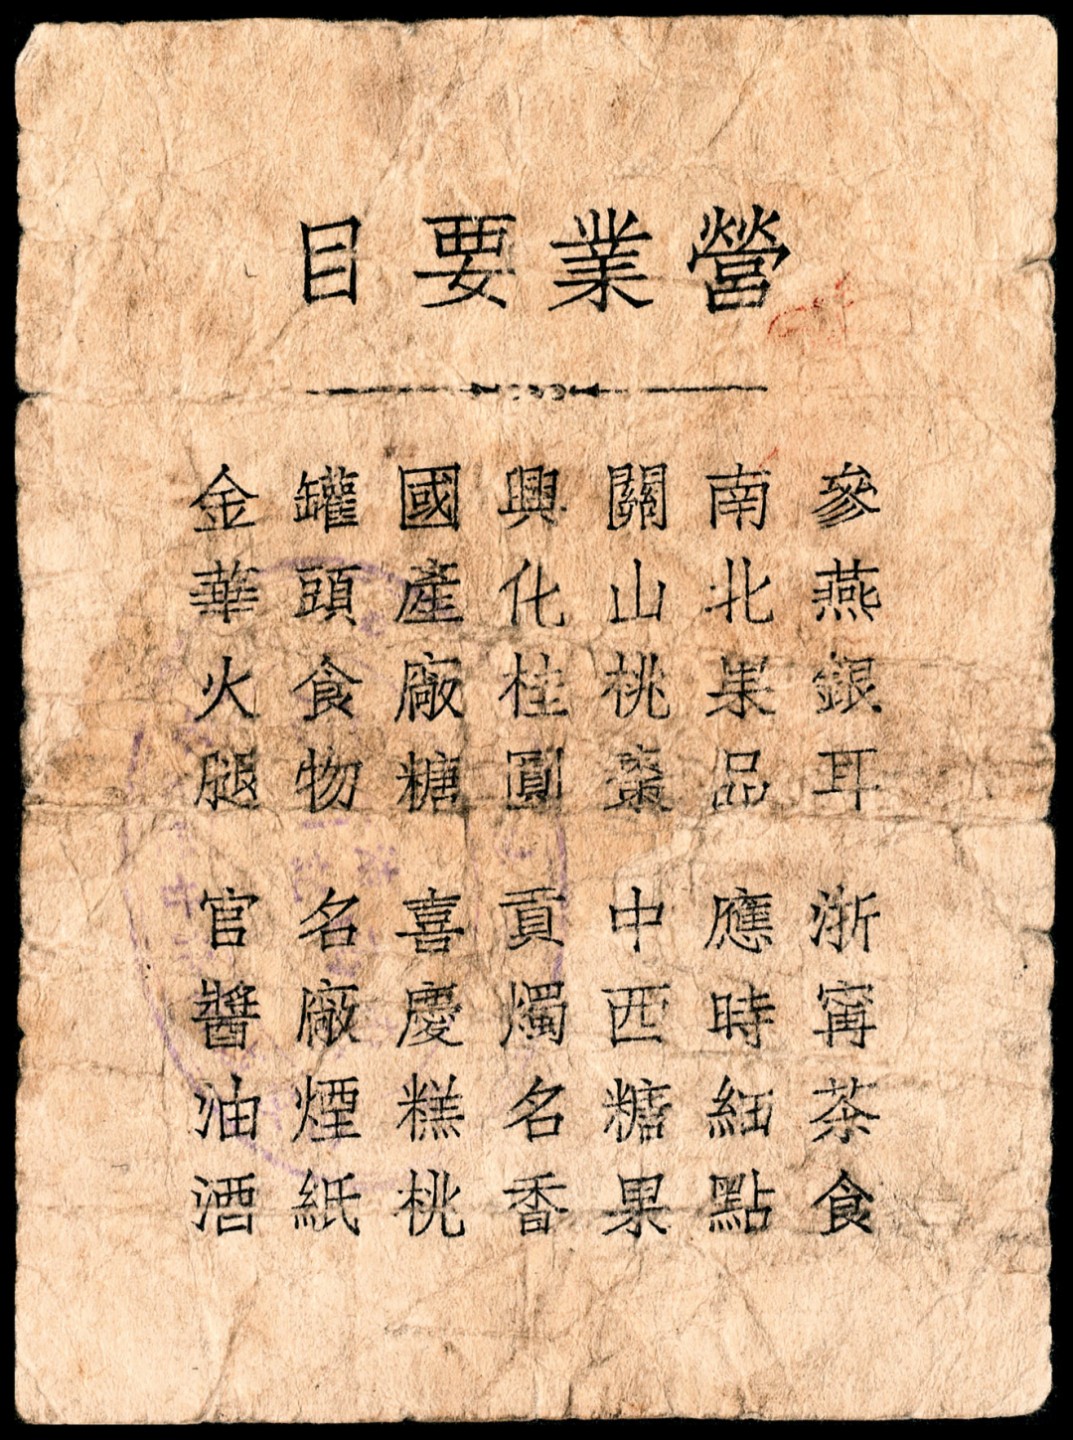 營業要目
參燕銀耳 浙甯茶食
南北果品 應時細點
關山桃棗 中西糖果
興化桂圓 貢燭名香
國產廠糖 喜慶糕桃
罐頭食物 名廠煙紙
金華火腿 官醬油酒